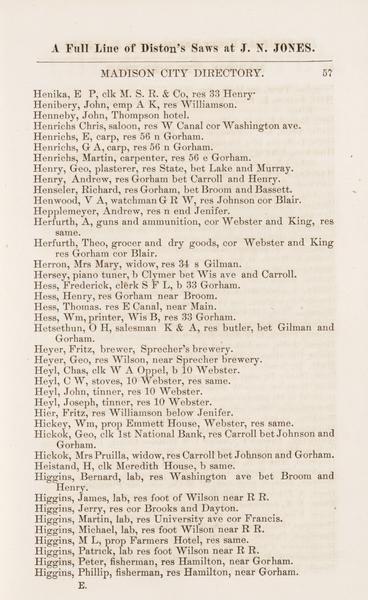 A Full Line of Diston's Saws at J. N. JONES.
MADISON CITY DIRECTORY. 57
Henika, E P, clk M. S. R. & Co, res 33 Henry·
Henibery, John, emp A K, res Williamson.
Henneby, John, Thompson hotel.
Henrichs Chris, saloon, res W Canal cor Washington ave.
Henrichs, E, carp, res 56 n Gorham.
Henrichs, G A, carp, res 56 n Gorham.
Henrichs, Martin, carpenter, res 56 e Gorham.
Henry, Geo, plasterer, res State, bet Lake and Murray.
Henry, Andrew, res Gorham bet Carroll and Henry.
Henseler, Richard, res Gorham, bet Broom and Bassett.
Henwood, V A, watchman G R W, res Johnson cor Blair.
Hepplemeyer, Andrew, res n end Jenifer.
Herfurth, A, guns and ammunition, cor Webster and King, res
same.
Herfurth, Theo, grocer and dry goods, cor Webster and King
res Gorham cor Blair.
Herron, Mrs Mary, widow, res 34 s Gilman.
Hersey, piano tuner, b Clymer bet Wis ave and Carroll.
Hess, Frederick, clerk S F L, b 33 Gorham.
Hess, Henry, res Gorham near Broom.
Hess, Thomas. res E Canal, near Main.
Hess, Wm, printer, Wis B, res 33 Gorham.
Hetsethun, O H, salesman K & A, res butler, bet Gilman and
Gorham.
Heyer, Fritz, brewer, Sprecher's brewery.
Heyer, Geo, res Wilson, near Sprecher brewery.
Heyl, Chas, clk W A Oppel, b 10 Webster.
Heyl, C W, stoves, 10 Webster, res same.
Heyl, John, tinner, res 10 Webster.
Heyl, Joseph, tinner, res 10 Webster.
Hier, Fritz, res Williamson below Jenifer.
Hickey, Wm, prop Emmett House, Webster, res same.
Hickok, Geo, clk 1st National Bank, res Carroll bet Johnson and
Gorham.
Hickok, Mrs Pruilla, widow, res Carroll bet Johnson and Gorham.
Heistand, H, clk Meredith House, b same.
Higgins, Bernard, lab, res Washington ave bet Broom and
Henry.
Higgins, James, lab, res foot of Wilson near R R.
Higgins, Jerry, res cor Brooks and Dayton.
Higgins, Martin, lab, res University ave cor Francis.
Higgins, Michael, lab, res foot Wilson near R R.
Higgins, M L, prop Farmers Hotel, res same.
Higgins, Patrick, lab res foot Wilson near R R.
Higgins, Peter, fisherman, res Hamilton, near Gorham.
Higgins, Phillip, fisherman, res Hamilton, near Gorham.
E.